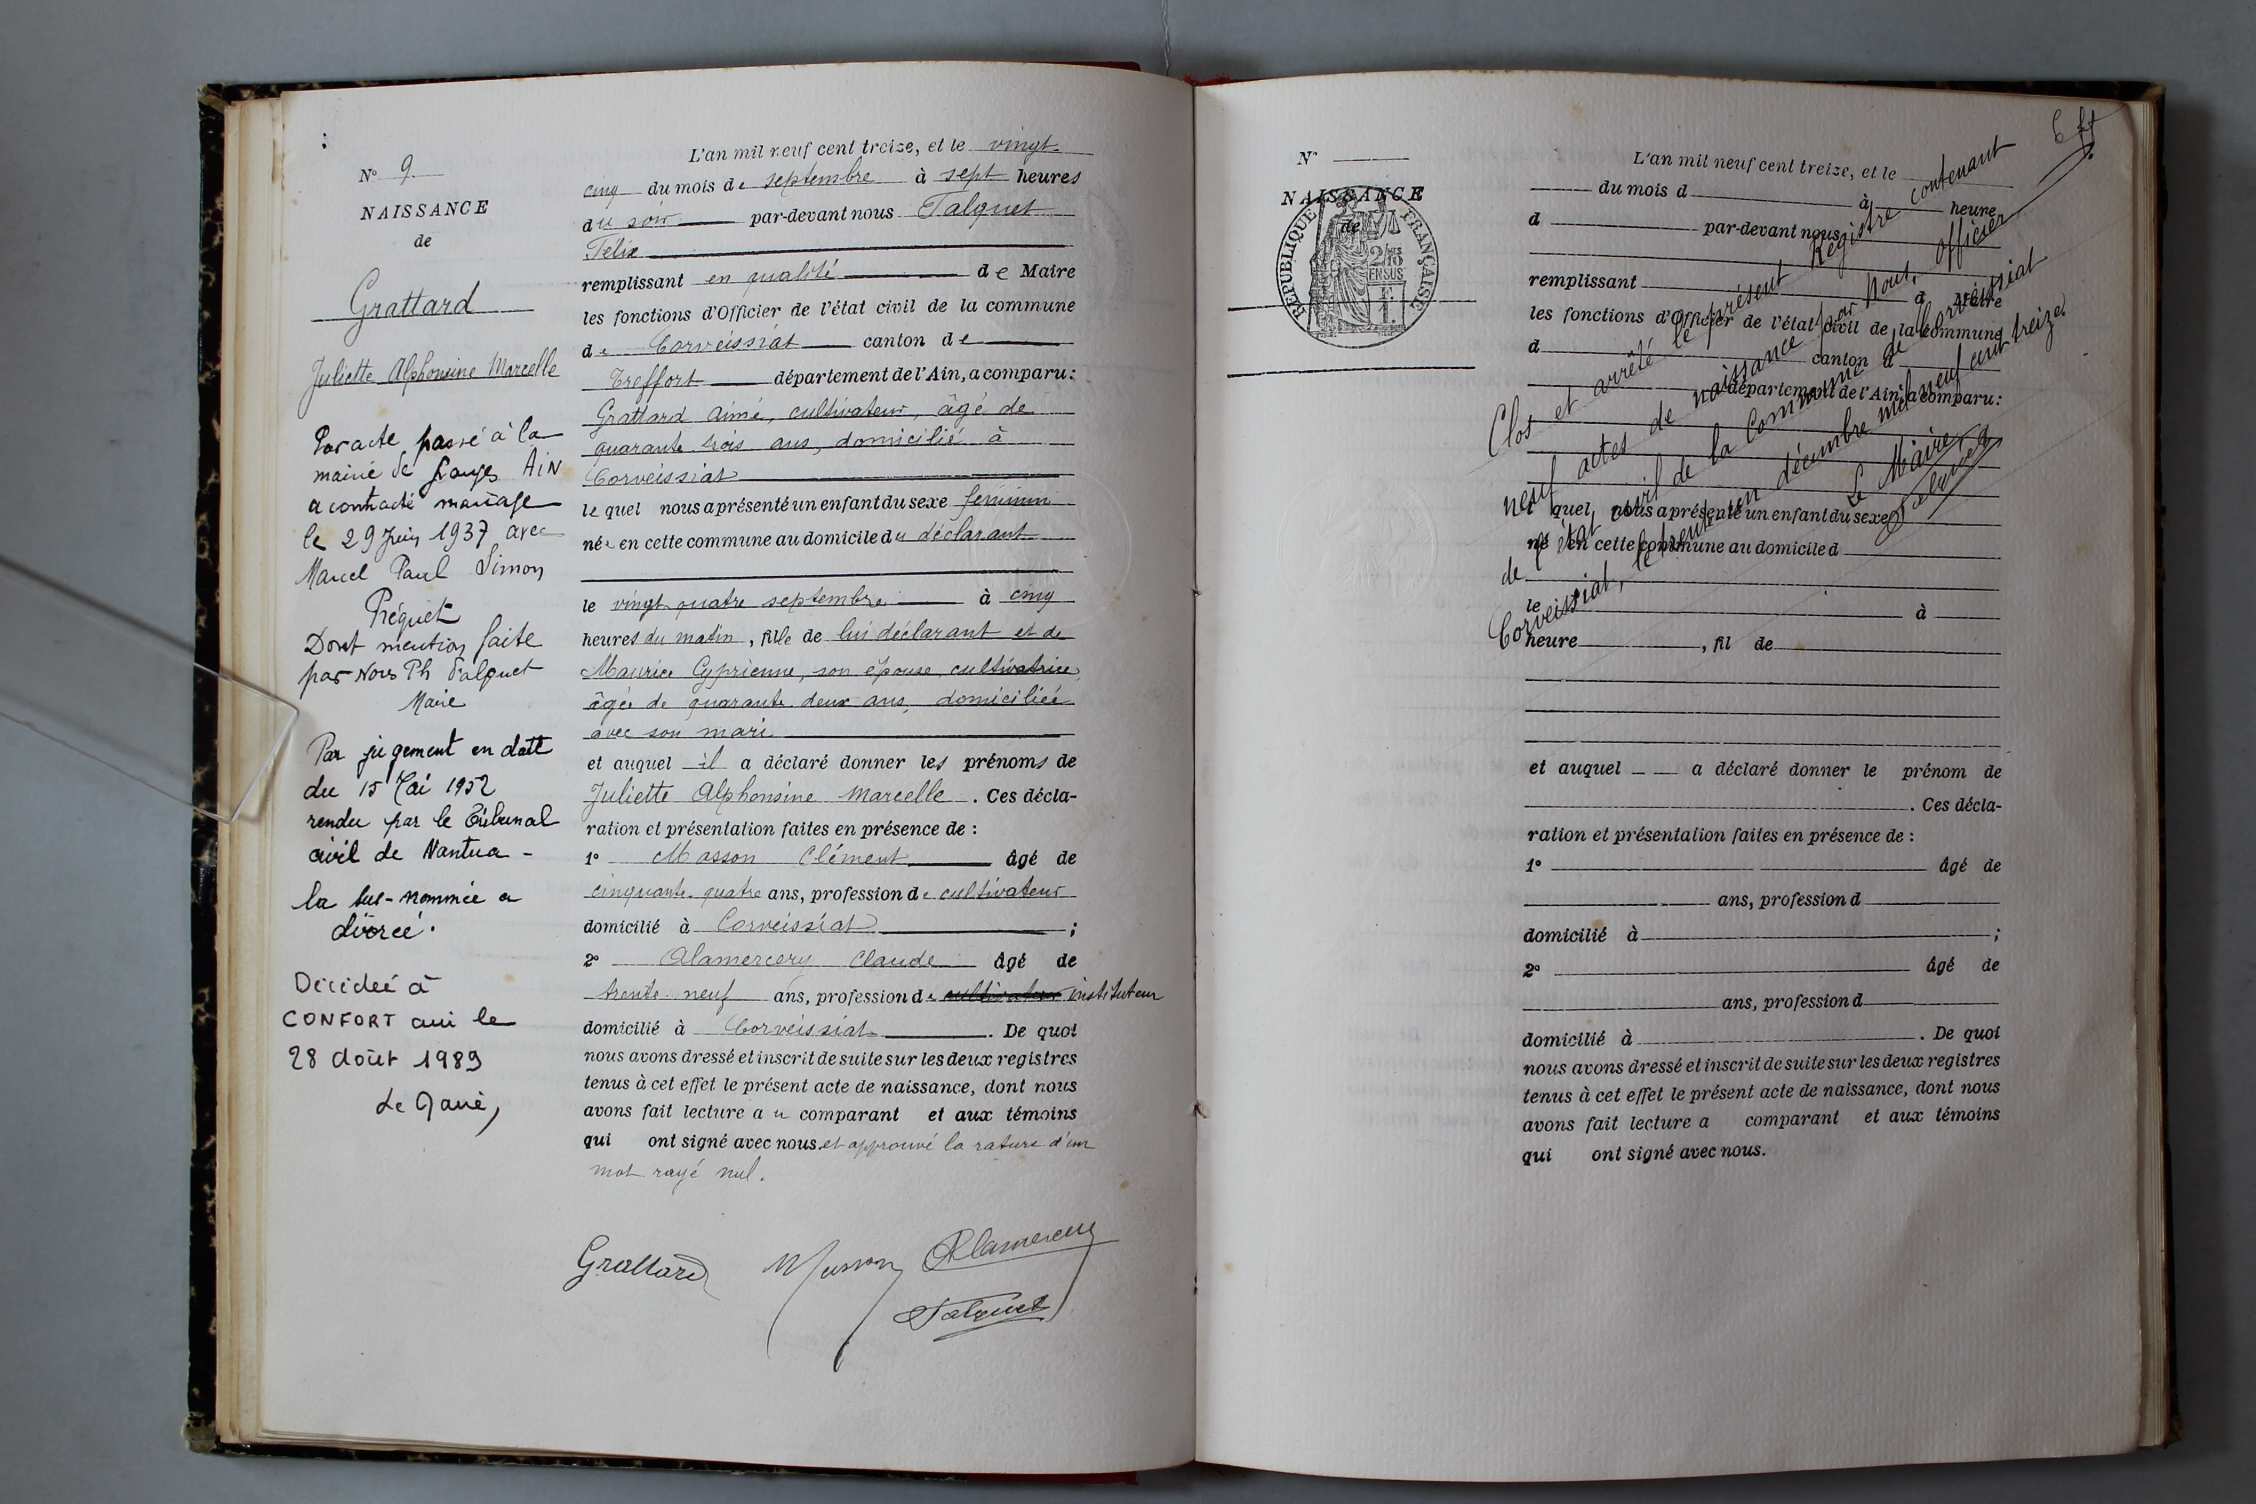 N° 9.
NAISSANCE
de
Grattard
Juliette Alphonsine Marcelle
Par acte passé à la
mairie de AIN
a contracté mariage
le 29 Juin 1937 avec
Marcel Paul Simon
Préquet
Dont mention faite
par Nous Ph Falquet
Maire
Par jugement en date
du 15 Mai 1952
rendu par le Tribunal
civil de Nantua -
la sus-nommée a
divorcé.
Décédée à
CONFORT ain le
28 Août 1989
Le Maire,
L'an mil neuf cent treize, et le vingt
cinq du mois de septembre à sept heures
du soir par-devant nous Falquet
Félix
remplissant en qualité de Maire
les fonctions d'Officier de l'état civil de la commune
de Corveissiat canton de
Treffort département de l'Ain, a comparu :
Grattard Aimé, cultivateur, âgé de
quarante trois ans, domicilié à
Corveissiat
lequel nous a présenté un enfant du sexe féminin
née en cette commune au domicile du déclarant
le vingt quatre septembre à cinq
heures du matin, fille de lui déclarant et de
Maurice Cyprienne, son épouse, cultivatrice,
âgée de quarante deux ans, domiciliée
avec son mari
et auquel il a déclaré donner les prénoms de
Juliette Alphonsine Marcelle. Ces décla-
ration et présentation faites en présence de :
1° Masson Clément âgé de
cinquante-quatre ans, profession de cultivateur
domicilié à Corveissiat ;
2° Alamercery Claude âgé de
trente-neuf ans, profession de cultivateur instituteur
domicilié à Corveissiat. De quoi
nous avons dressé et inscrit de suite sur les deux registres
tenus à cet effet le présent acte de naissance, dont nous
avons fait lecture au comparant et aux témoins
qui ont signé avec nous et approuvé la rature d'un
mot rayé nul.
Grattard Masson Alamercery
Falquet
N°
NAISSANCE
de
RÉPUBLIQUE FRANÇAISE
2/10 EN SUS
1 F.
L'an mil neuf cent treize, et le
du mois d à heure
d par-devant nous
remplissant d Maire
les fonctions d'Officier de l'état civil de la commune
d canton d
département de l'Ain, a comparu :
l quel nous a présenté un enfant du sexe
né en cette commune au domicile d
le à
heure , fil de
et auquel a déclaré donner le prénom de
. Ces décla-
ration et présentation faites en présence de :
1° âgé de
ans, profession d
domicilié à ;
2° âgé de
ans, profession d
domicilié à . De quoi
nous avons dressé et inscrit de suite sur les deux registres
tenus à cet effet le présent acte de naissance, dont nous
avons fait lecture a comparant et aux témoins
qui ont signé avec nous.
Clos et arrêté le présent Registre contenant
neuf actes de naissance par Nous, Officier
de l'état civil de la Commune de Corveissiat
Corveissiat, le trente un décembre mil neuf cent treize.
Le Maire,
Falquet